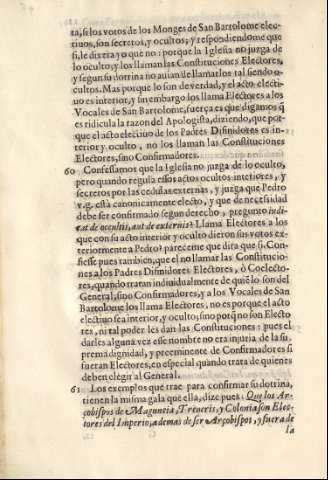 ta, si los votos de los Monges de San Bartolome elec-
tiuos, son secretos, y ocultos; y respondiendome que
si, le dixera yo que no: porque la Iglesia no juzga de
lo oculto, y los llaman las Constituciones Electores,
y segun su dotrina no auian de llamarlos tal siendo o-
cultos. Mas porque lo son de verdad, y el acto electi-
uo es interior, y sin embargo los llama Electores a los
Vocales de San Bartolome, fuerça es que digamos q̃
es ridicula la razon del Apologista, diziendo, que por-
que el acto electiuo de los Padres Difinidores es in-
terior y oculto, no los llaman las Constituciones
Electores, sino Confirmadores.
60 Confessamos que la Iglesia no juzga de lo oculto,
pero quando regula essos actos ocultos interiores, y
secretos por las cedulas externas, y juzga que Pedro
v.g. està canonicamente electo, y que de necessidad
debe ser confirmado segun derecho, pregunto iudi-
cat de occultis, aut de externis? Llama Electores a los
que con su acto interior y oculto dieron sus votos ex-
teriormente a Pedro? pareceme que dira que si. Con-
fiesse pues tambien, que el no llamar las Constitucio-
nes a los Padres Difinidores Electores, ò Coelecto-
res, quando tratan indiuidualmente de quiẽ lo son del
General, sino Confirmadores, y a los Vocales de San
Bartolome los llama Electores, no es porque el acto
electiuo sea interior, y oculto; sino porq̃ no son Electo
res, ni tal poder les dan las Constituciones: pues el
darles alguna vez esse nombre no era injuria de la su-
prema dignidad, y preeminente de Confirmadores si
fueran Electores, en especial quando trata de quienes
deben elegir al General.
61 Los exemplos que trae para confirmar su dotrina,
tienen la misma gala que ella, dize pues: Que los Ar-
çobispos de Maguncia, Treueris, y Colonia son Elec-
tores del Imperio, ademas de ser Arçobispos, y fuera de
la